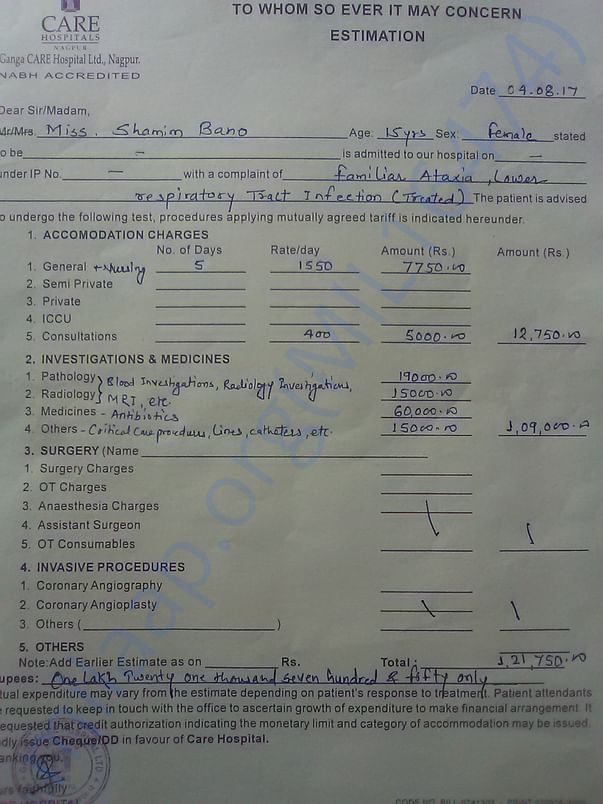 CARE
HOSPITALS
NAGPUR
Ganga CARE Hospital Ltd., Nagpur.
NABH ACCREDITED
TO WHOM SO EVER IT MAY CONCERN
ESTIMATION
Date 04.08.17
Dear Sir/Madam,
Mr/Mrs. Miss. Shamim Bano Age: 15yrs Sex: female stated
to be - is admitted to our hospital on -
under IP No. - with a complaint of familiar Ataxia, Lower
respiratory Tract Infection (Treated) The patient is advised
to undergo the following test, procedures applying mutually agreed tariff is indicated hereunder.
1. ACCOMODATION CHARGES
No. of Days Rate/day Amount (Rs.) Amount (Rs.)
1. General + nursing 5 1550 7750.00
2. Semi Private
3. Private
4. ICCU
5. Consultations 400 5000.00 12,750.00
2. INVESTIGATIONS & MEDICINES
1. Pathology } Blood Investigations, Radiology Investigations, 19000.00
2. Radiology } MRI, etc. 15000.00
3. Medicines - Antibiotics 60,000.00
4. Others - Critical Care procedures, Lines, catheters, etc. 15000.00 1,09,000.00
3. SURGERY (Name
1. Surgery Charges
2. OT Charges
3. Anaesthesia Charges
4. Assistant Surgeon
5. OT Consumables
4. INVASIVE PROCEDURES
1. Coronary Angiography
2. Coronary Angioplasty
3. Others ( )
5. OTHERS
Note:Add Earlier Estimate as on Rs. Total : 1,21,750.00
upees: One Lakh Twenty one thousand seven hundred & fifty only
tual expenditure may vary from the estimate depending on patient's response to treatment. Patient attendants
e requested to keep in touch with the office to ascertain growth of expenditure to make financial arrangement. It
equested that credit authorization indicating the monetary limit and category of accommodation may be issued.
dly issue Cheque/DD in favour of Care Hospital.
anking you,
urs faithfully